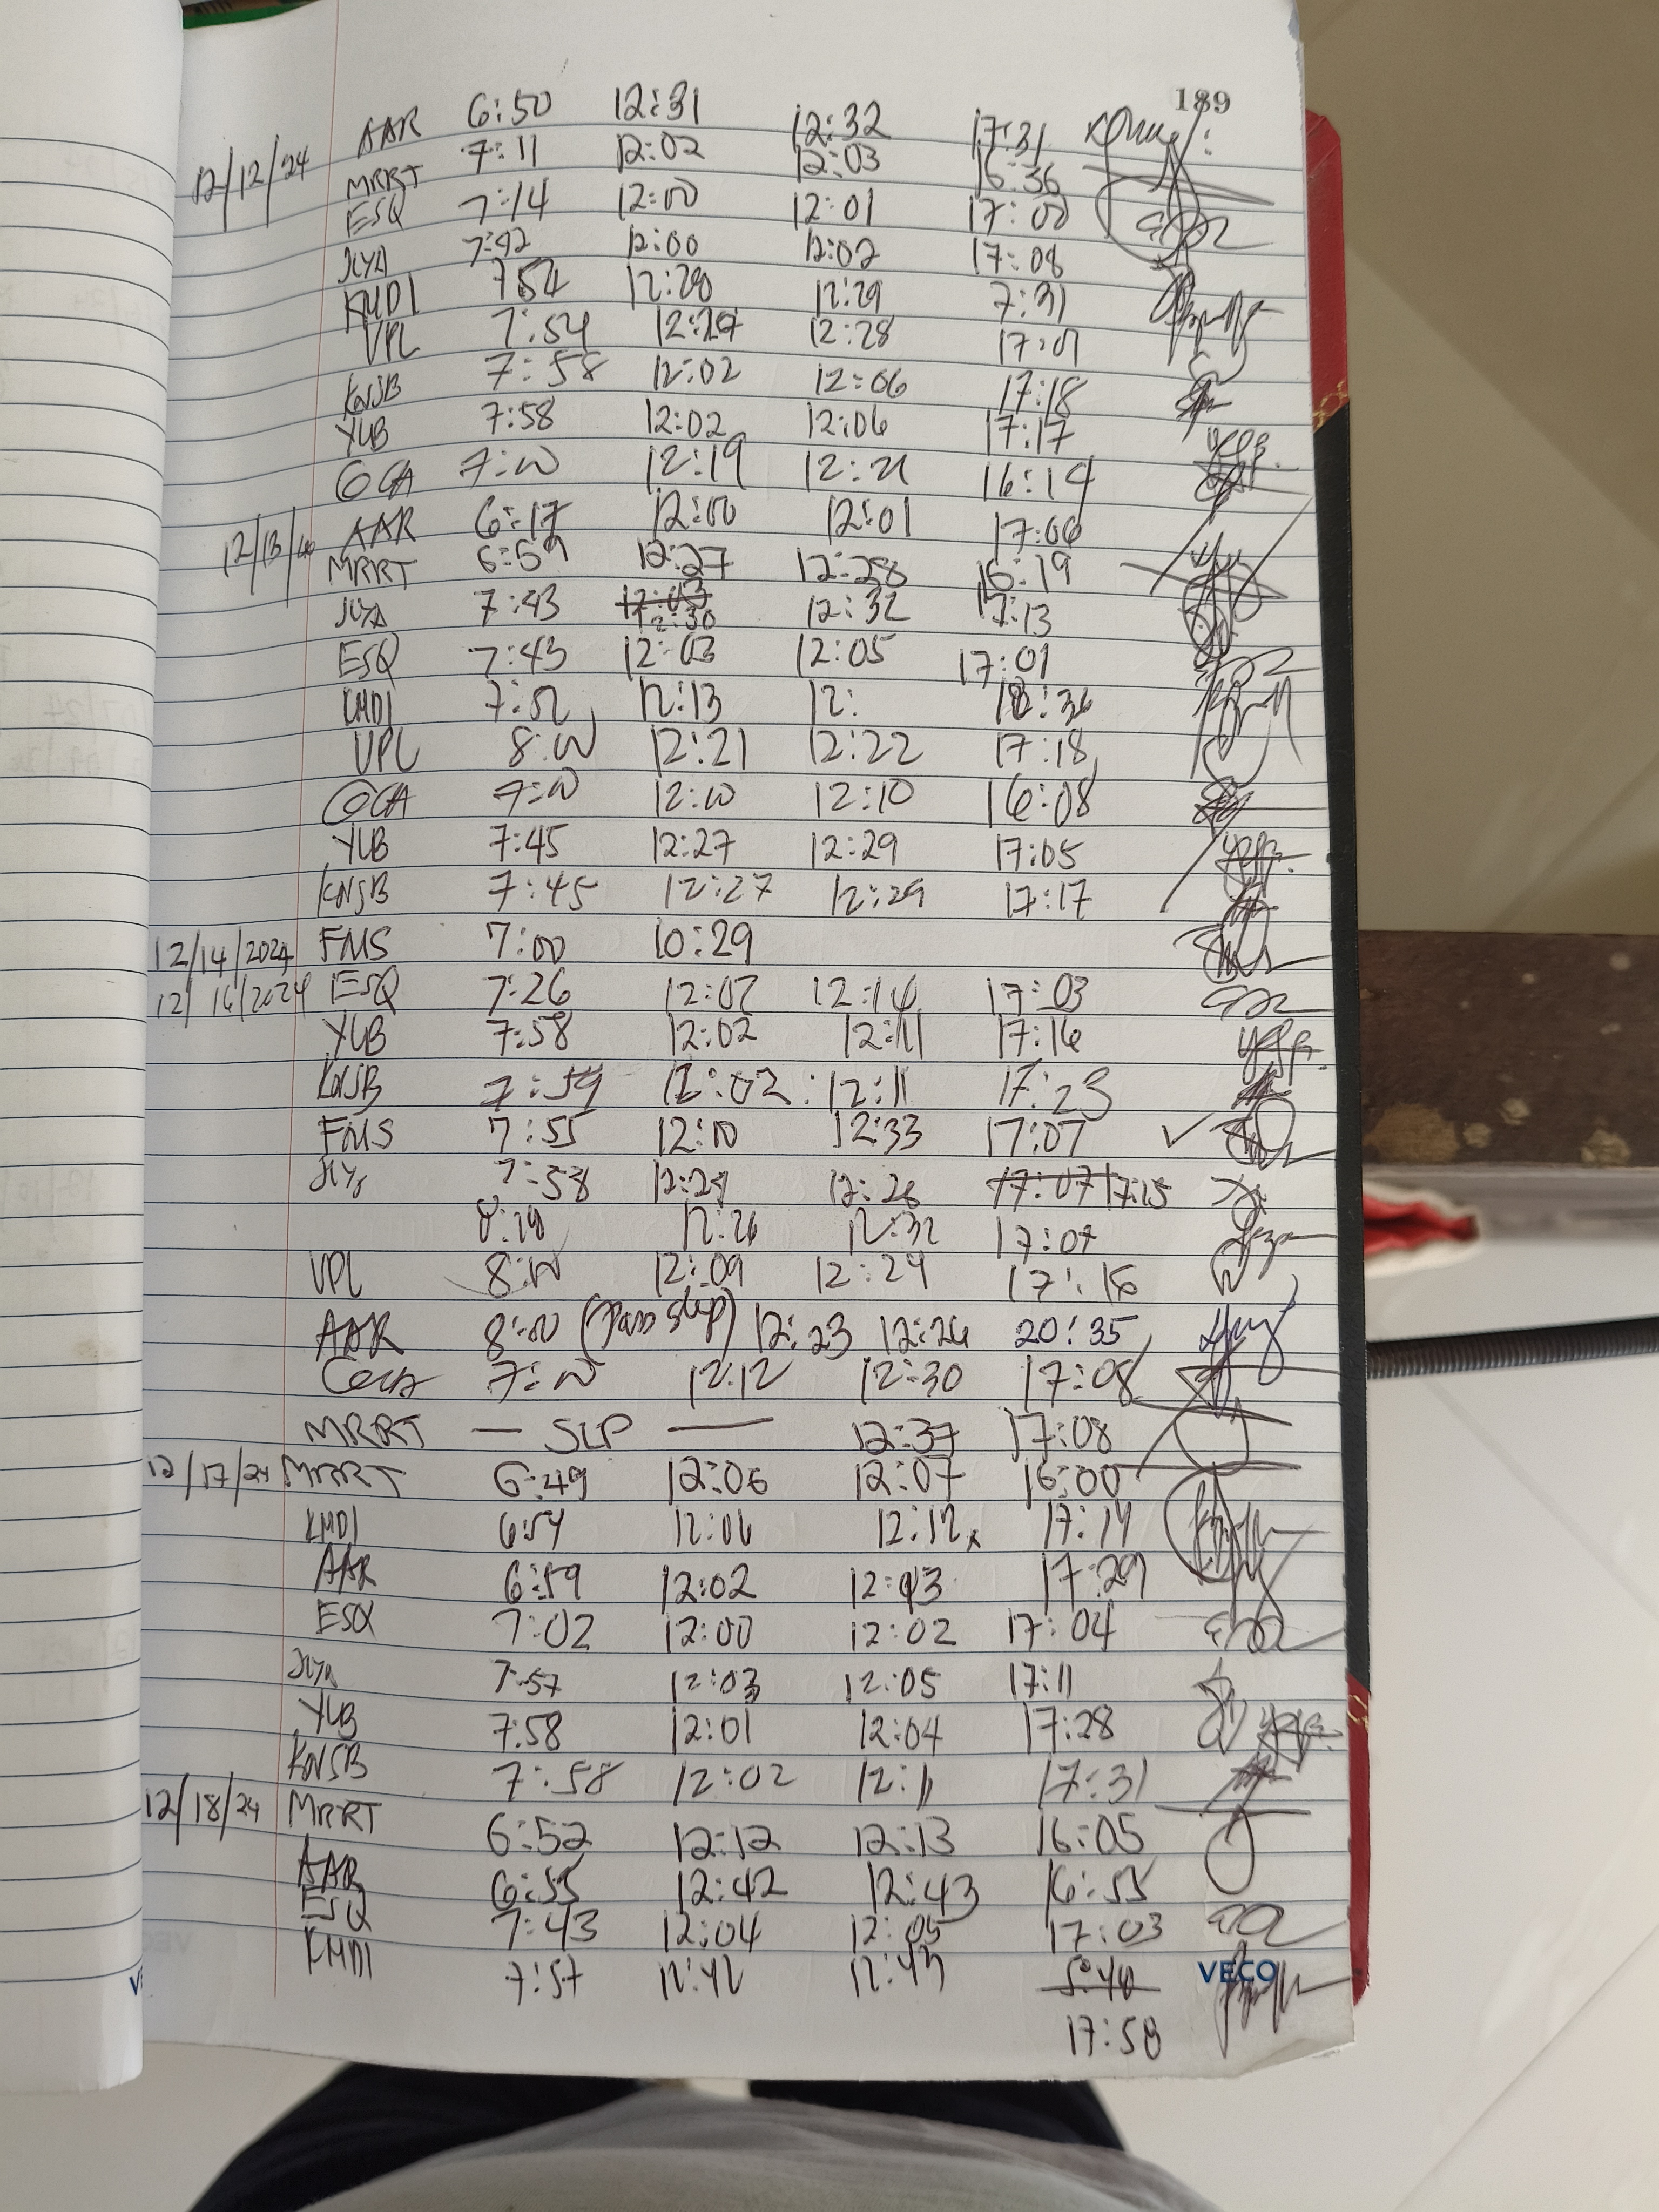 189
12/12/24 AAR 6:50 12:31 12:32 17:31
MRRT 7:11 12:02 12:03 16:36
ESQ 7:14 12:00 12:01 17:00
7:42 12:00 12:02 17:08
KMDI 7:52 12:28 12:29 7:31
VPL 7:54 12:28 17:01
KNSB 7:58 12:02 12:06 17:18
YLB 7:58 12:02 12:06 17:17
GCA 7:00 12:19 12:21 16:14
AAR 6:17 12:00 12:01 17:06
MRRT 6:59 12:27 12:28 16:19
7:43 12:03 12:30 12:32 17:13
ESQ 7:43 12:03 12:05 17:01
KMDI 7:52 12:13 12: 18:36
VPL 8:00 12:21 12:22 17:18
GCA 7:00 12:10 12:10 16:08
YLB 7:45 12:27 12:29 17:05
KNSB 7:45 12:27 12:29 17:17
12/14/2024 FMS 7:00 10:29
12/16/2024 ESQ 7:26 12:07 12:14 17:03
YLB 7:58 12:02 12:11 17:16
KNSB 7:59 12:02 12:11 17:23
FMS 7:55 12:10 12:33 17:07
7:58 12:24 12:26 17:07 17:15
12:26 12:32 17:07
VPL 8:00 12:09 12:24 17:18
AAR 8:00 (Pass slip) 12:23 12:26 20:35
7:00 12:12 12:30 17:08
MRRT — SLP — 12:37 17:08
12/17/24 MRRT 6:49 12:06 12:07 16:00
KMDI 6:54 12:06 12:12 17:14
AAR 6:59 12:02 12:43 17:29
ESQ 7:02 12:00 12:02 17:04
7:57 12:03 12:05 17:11
YLB 7:58 12:01 12:04 17:28
KNSB 7:58 12:02 12:11 17:31
12/18/24 MRRT 6:52 12:12 12:13 16:05
AAR 6:55 12:42 12:43 16:55
ESQ 7:43 12:04 12:05 17:03
KMDI 7:57 12:42 12:43 5:40
17:58
VECO